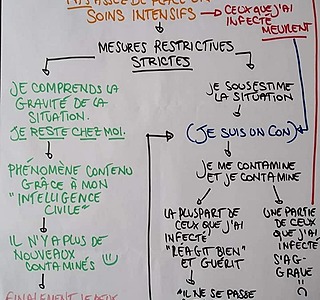 SOINS INTENSIFS
CEUX QUE J'AI
INFECTÉ
MEURENT
MESURES RESTRICTIVES
STRICTES
JE COMPRENDS LA
GRAVITÉ DE LA
SITUATION.
JE RESTE CHEZ MOI.
PHÉNOMÈNE CONTENU
GRÂCE À MON
"INTELLIGENCE
CIVILE"
IL N'Y A PLUS DE
NOUVEAUX
CONTAMINÉS
JE SOUSESTIME
LA SITUATION
(JE SUIS UN CON)
JE ME CONTAMINE
ET JE CONTAMINE
LA PLUSPART DE
CEUX QUE J'AI
INFECTÉ
"RÉAGIT BIEN"
ET GUÉRIT
"IL NE SE PASSE
UNE PARTIE
DE CEUX
QUE J'AI
INFECTÉ
S'AG-
GRAVE